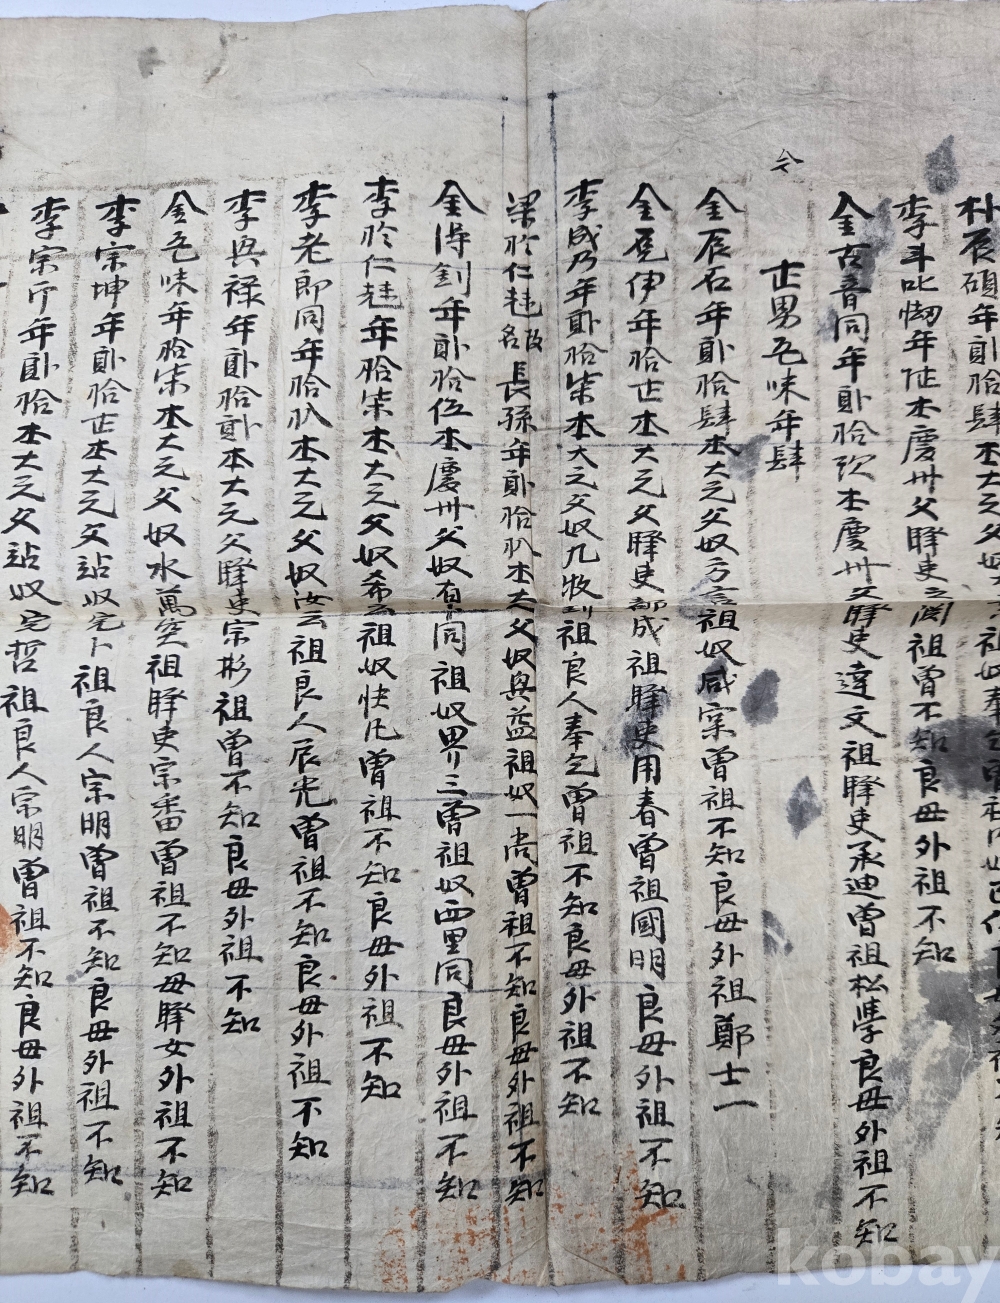 朴辰碩年貳拾肆本大元父奴
李斗叱㗡年本慶州父驛吏之瀾祖曾不知良母外祖不知
金古音同年貳拾玖本慶州父驛吏達文祖驛吏承迪曾祖松學良母外祖不知
亽 男乭味年肆
金辰石年貳拾肆本大元父奴方言祖奴咸宗曾祖不知良母外祖鄭士一
金見伊年拾本大元父驛吏成祖驛吏用春曾祖國明良母外祖不知
李成乃年貳拾柒本大元父奴九祖良人奉乞曾祖不知良母外祖不知
梁於仁走改名長孫年貳拾捌本大父奴興益祖奴一尚曾祖不知良母外祖不知
金淂釗年貳拾伍本慶州父奴有同祖奴界三曾祖奴四里同良母外祖不知
李於仁走年拾柒本大元父奴希祖奴快凡曾祖不知良母外祖不知
李老郎同年拾捌本大元父奴汝云祖良人辰光曾祖不知良母外祖不知
李興祿年貳拾貳本大元父驛吏宗彬祖曾不知良母外祖不知
金乭味年拾柒本大元父奴水萬祖驛吏宗番曾祖不知母驛女外祖不知
李宗坤年貳拾本大元父站奴完卜祖良人宗明曾祖不知良母外祖不知
李宗斤年貳拾本大元父站奴完哲祖良人宗明曾祖不知良母外祖不知
kobay